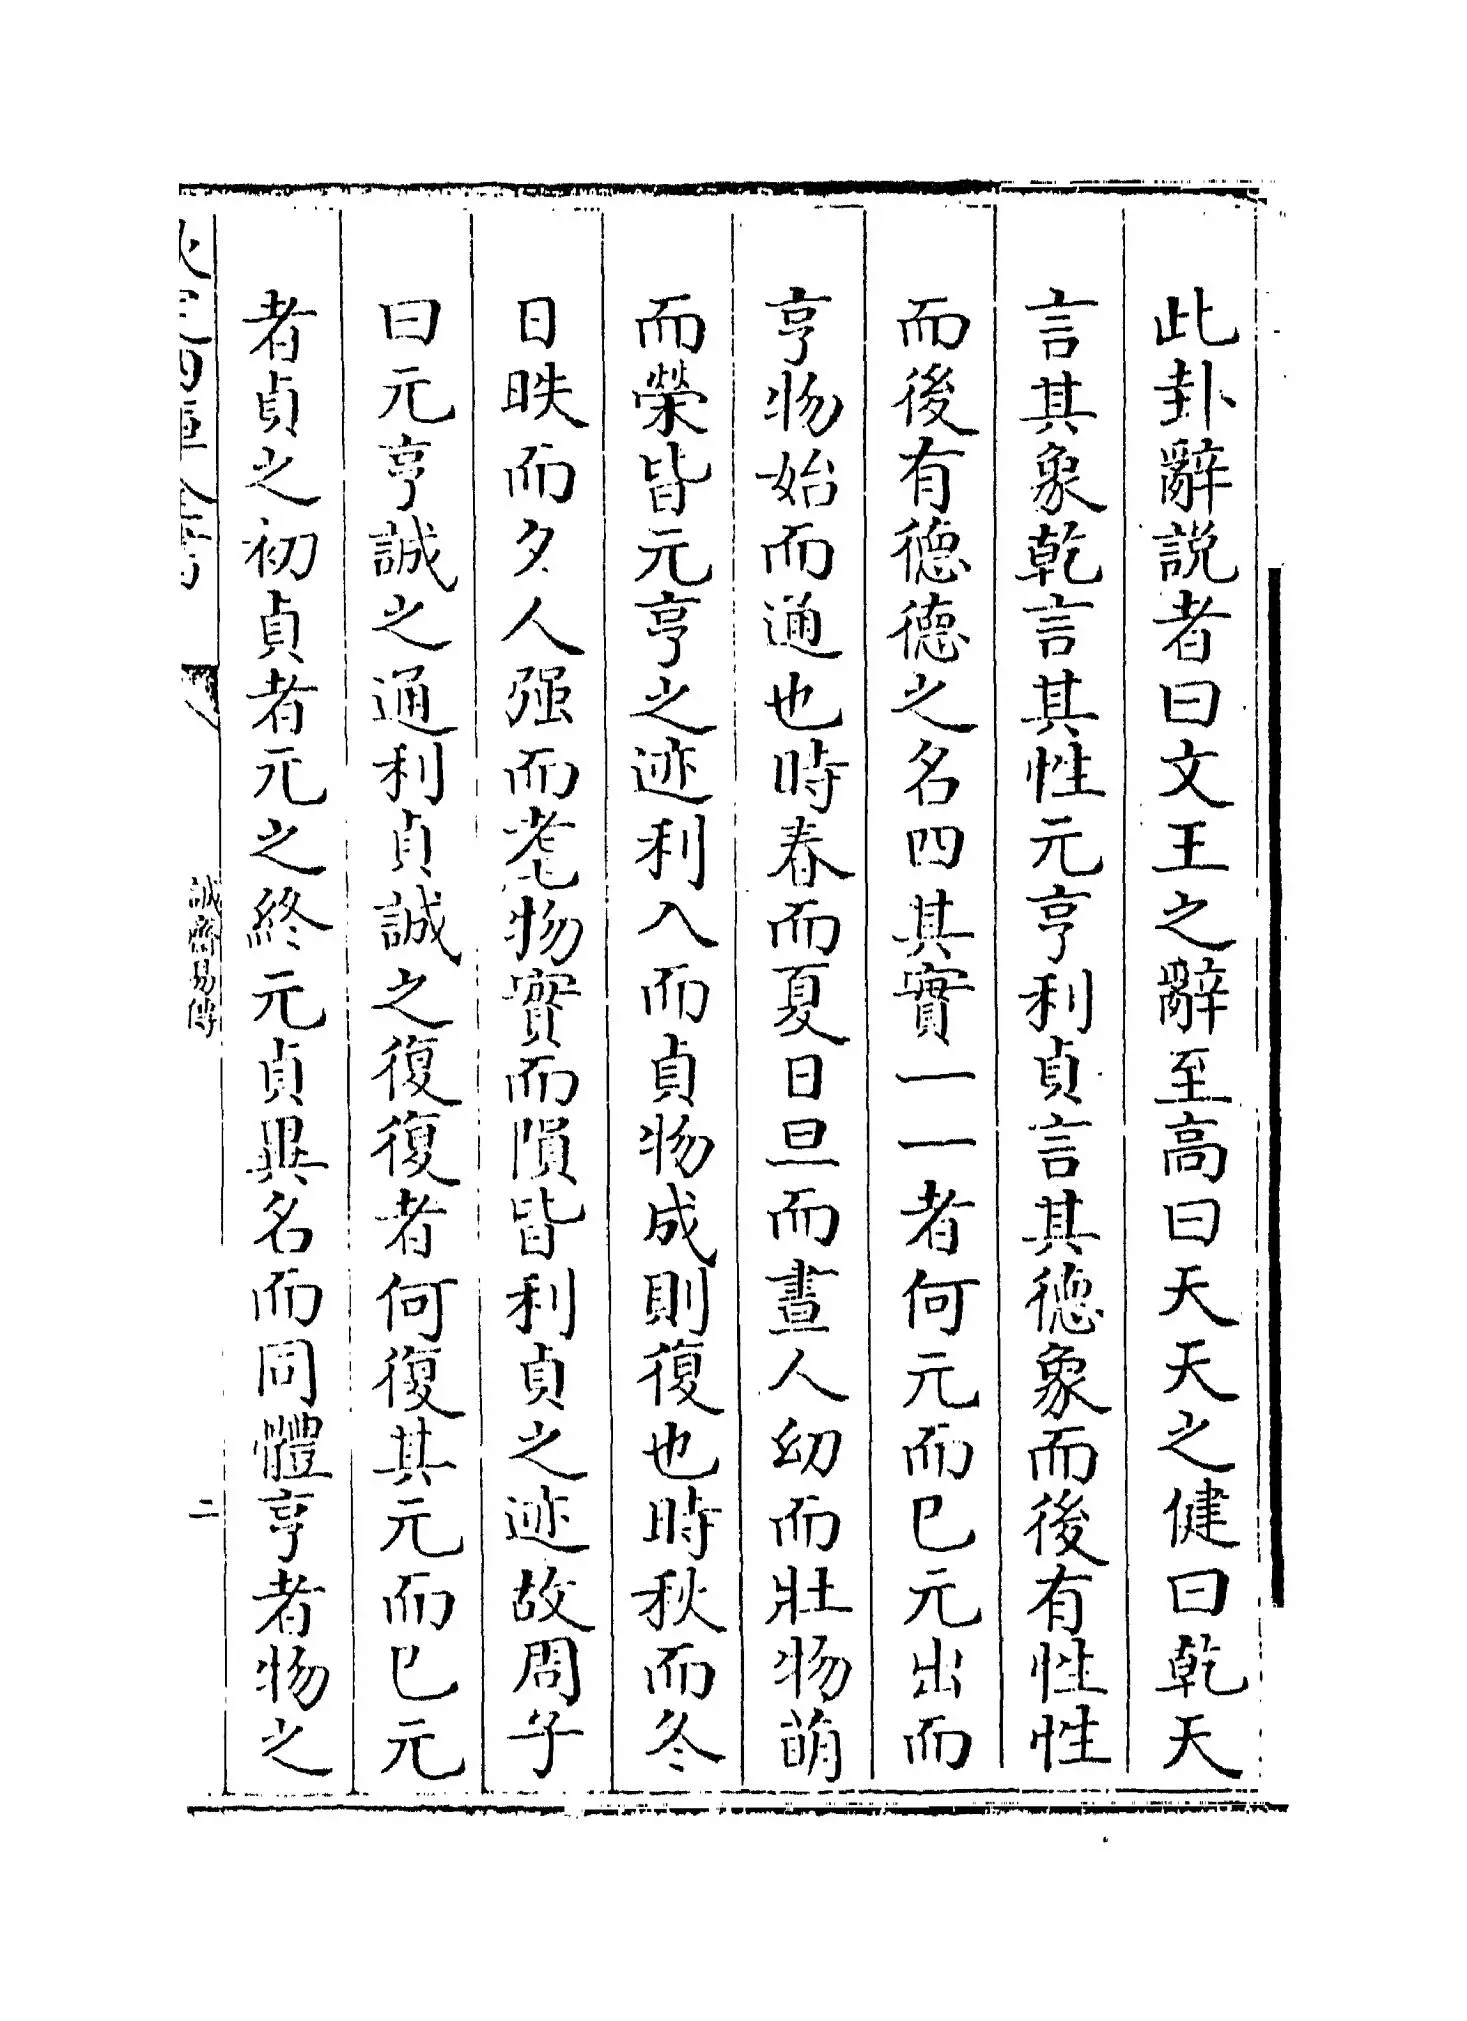 此卦辭説者曰文王之辭至高曰天天之健曰乾天
言其象乾言其性元亨利貞言其德象而後有性性
而後有德德之名四其實一一者何元而已元出而
亨物始而通也時春而夏日旦而晝人幼而壯物萌
而榮皆元亨之迹利入而貞物成則復也時秋而冬
日昳而夕人强而耄物實而隕皆利貞之迹故周子
曰元亨誠之通利貞誠之復復者何復其元而已元
者貞之初貞者元之終元貞異名而同體亨者物之
欽定四庫全書
誠齋易傳
二